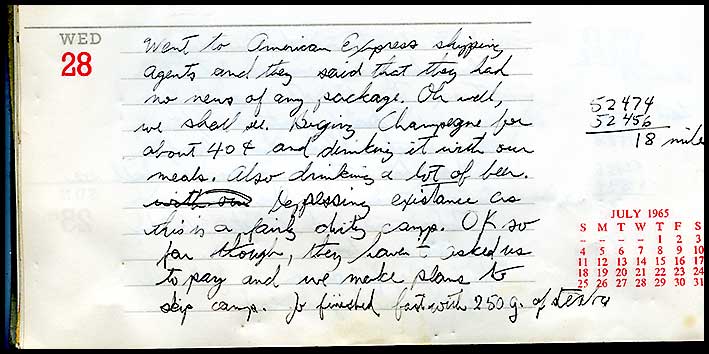 WED
28
Went to American Express shipping
agents and they said that they had
no news of any package. Oh well,
we shall see. Buying Champagne for
about 40¢ and drinking it with our
meals. Also drinking a lot of beer.
Depressing existance as
this is a fairly dirty camp. OK so
far though, they haven't asked us
to pay and we make plans to
skip camp. Jo finished fast with 250 g. of
52474
52456
18 mile
JULY 1965
S M T W T F S
-- -- -- -- 1 2 3
4 5 6 7 8 9 10
11 12 13 14 15 16 17
18 19 20 21 22 23 24
25 26 27 28 29 30 31